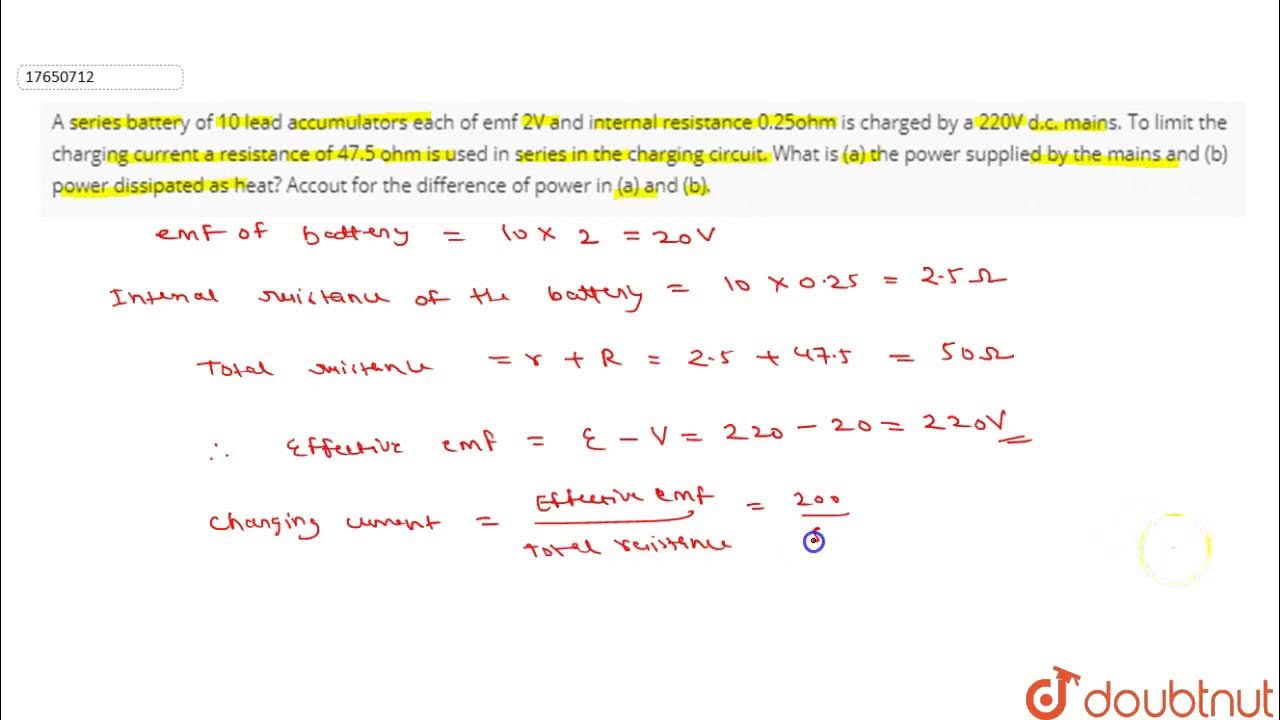 17650712
A series battery of 10 lead accumulators each of emf 2V and internal resistance 0.25ohm is charged by a 220V d.c. mains. To limit the
charging current a resistance of 47.5 ohm is used in series in the charging circuit. What is (a) the power supplied by the mains and (b)
power dissipated as heat? Accout for the difference of power in (a) and (b).
emf of battery = 10 × 2 = 20V
Internal resistance of the battery = 10 × 0.25 = 2.5Ω
Total resistance = r + R = 2.5 + 47.5 = 50Ω
∴ Effective emf = ε - V = 220 - 20 = 220V
Charging current = Effective emf / Total resistance = 200 /
doubtnut